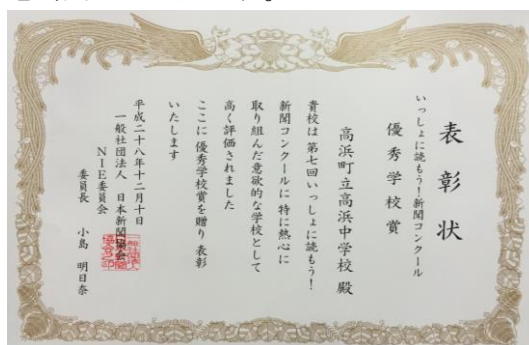 表彰状
いっしょに読もう！新聞コンクール
優秀学校賞
高浜町立高浜中学校殿
貴校は第七回いっしょに読もう！
新聞コンクールに特に熱心に
取り組んだ意欲的な学校として
高く評価されました
ここに優秀学校賞を贈り表彰
いたします
平成二十八年十二月十日
一般社団法人 日本新聞協会
NIE委員会
委員長 小島 明日奈